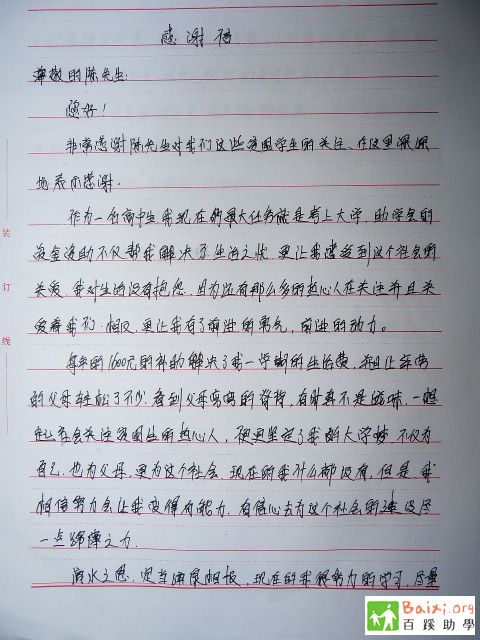 感谢信
尊敬的陈先生:
您好!
非常感谢陈先生对我们这些贫困学生的关注,在这里深深
地表示感谢。
作为一名高中生我现在的最大任务就是考上大学,助学会的
资金资助不仅帮我解决了生活之忧,更让我感受到这个社会的
关爱,我对生活没有抱怨,因为还有那么多的热心人在关注并且关
爱着我们,相反,更让我有了前进的勇气,前进的动力。
每年的1600元的补助解决了我一学期的生活费,并且让年迈
的父母轻松了不少,看到父母弯弯的脊背,有时真不是滋味,一想
起社会关注贫困生的热心人,便更坚定了我的大学梦,不仅为
自己,也为父母,更为这个社会,现在的我什么都没有,但是我
相信努力会让我变得有能力,有信心去为这个社会的建设尽
一点绵薄之力.
滴水之恩,定当涌泉相报,现在的我很努力的学习,尽量
装
订
线
Baixi.org
百蹊助學